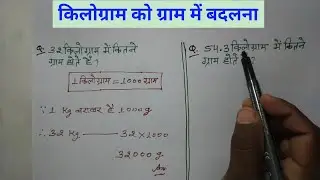 किलोग्राम को ग्राम में बदलना
Q. 32 किलोग्राम में कितने
ग्राम होते हैं ?
1 किलोग्राम = 1000 ग्राम
∴ 1 Kg बराबर है 1000 g
∴ 32 Kg ——— 32 × 1000
32000 g
Ans
Q. 54.3 किलोग्राम में कितने
ग्राम होते